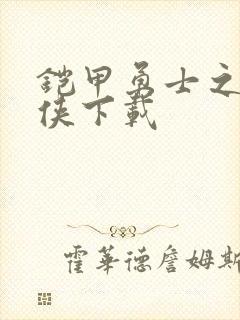 铠甲勇士之
侠下载
霍华德詹姆斯